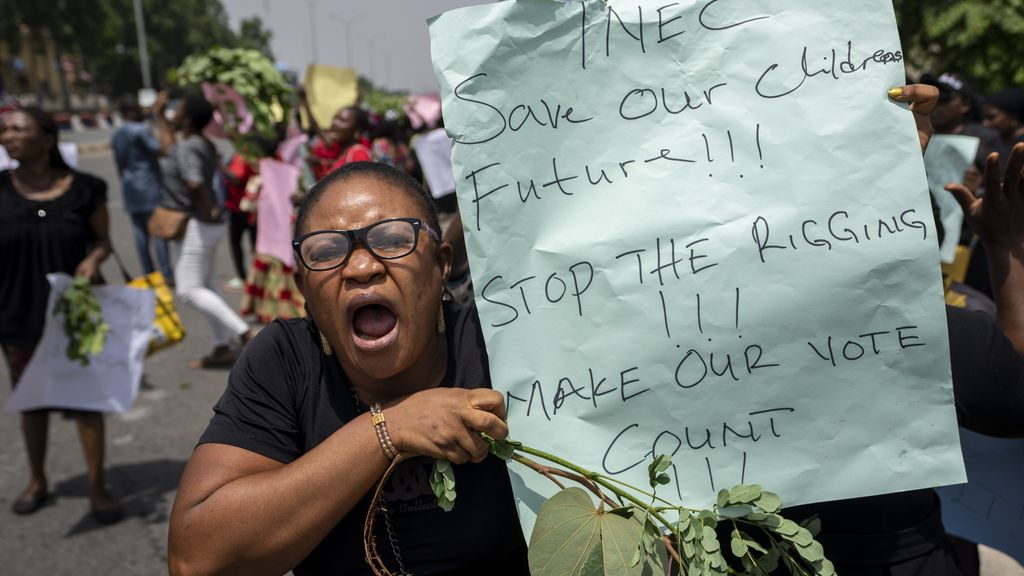 INEC
Save our Childrens
Future!!!
STOP THE RIGGING
!!!
MAKE OUR VOTE
COUNT
!!!